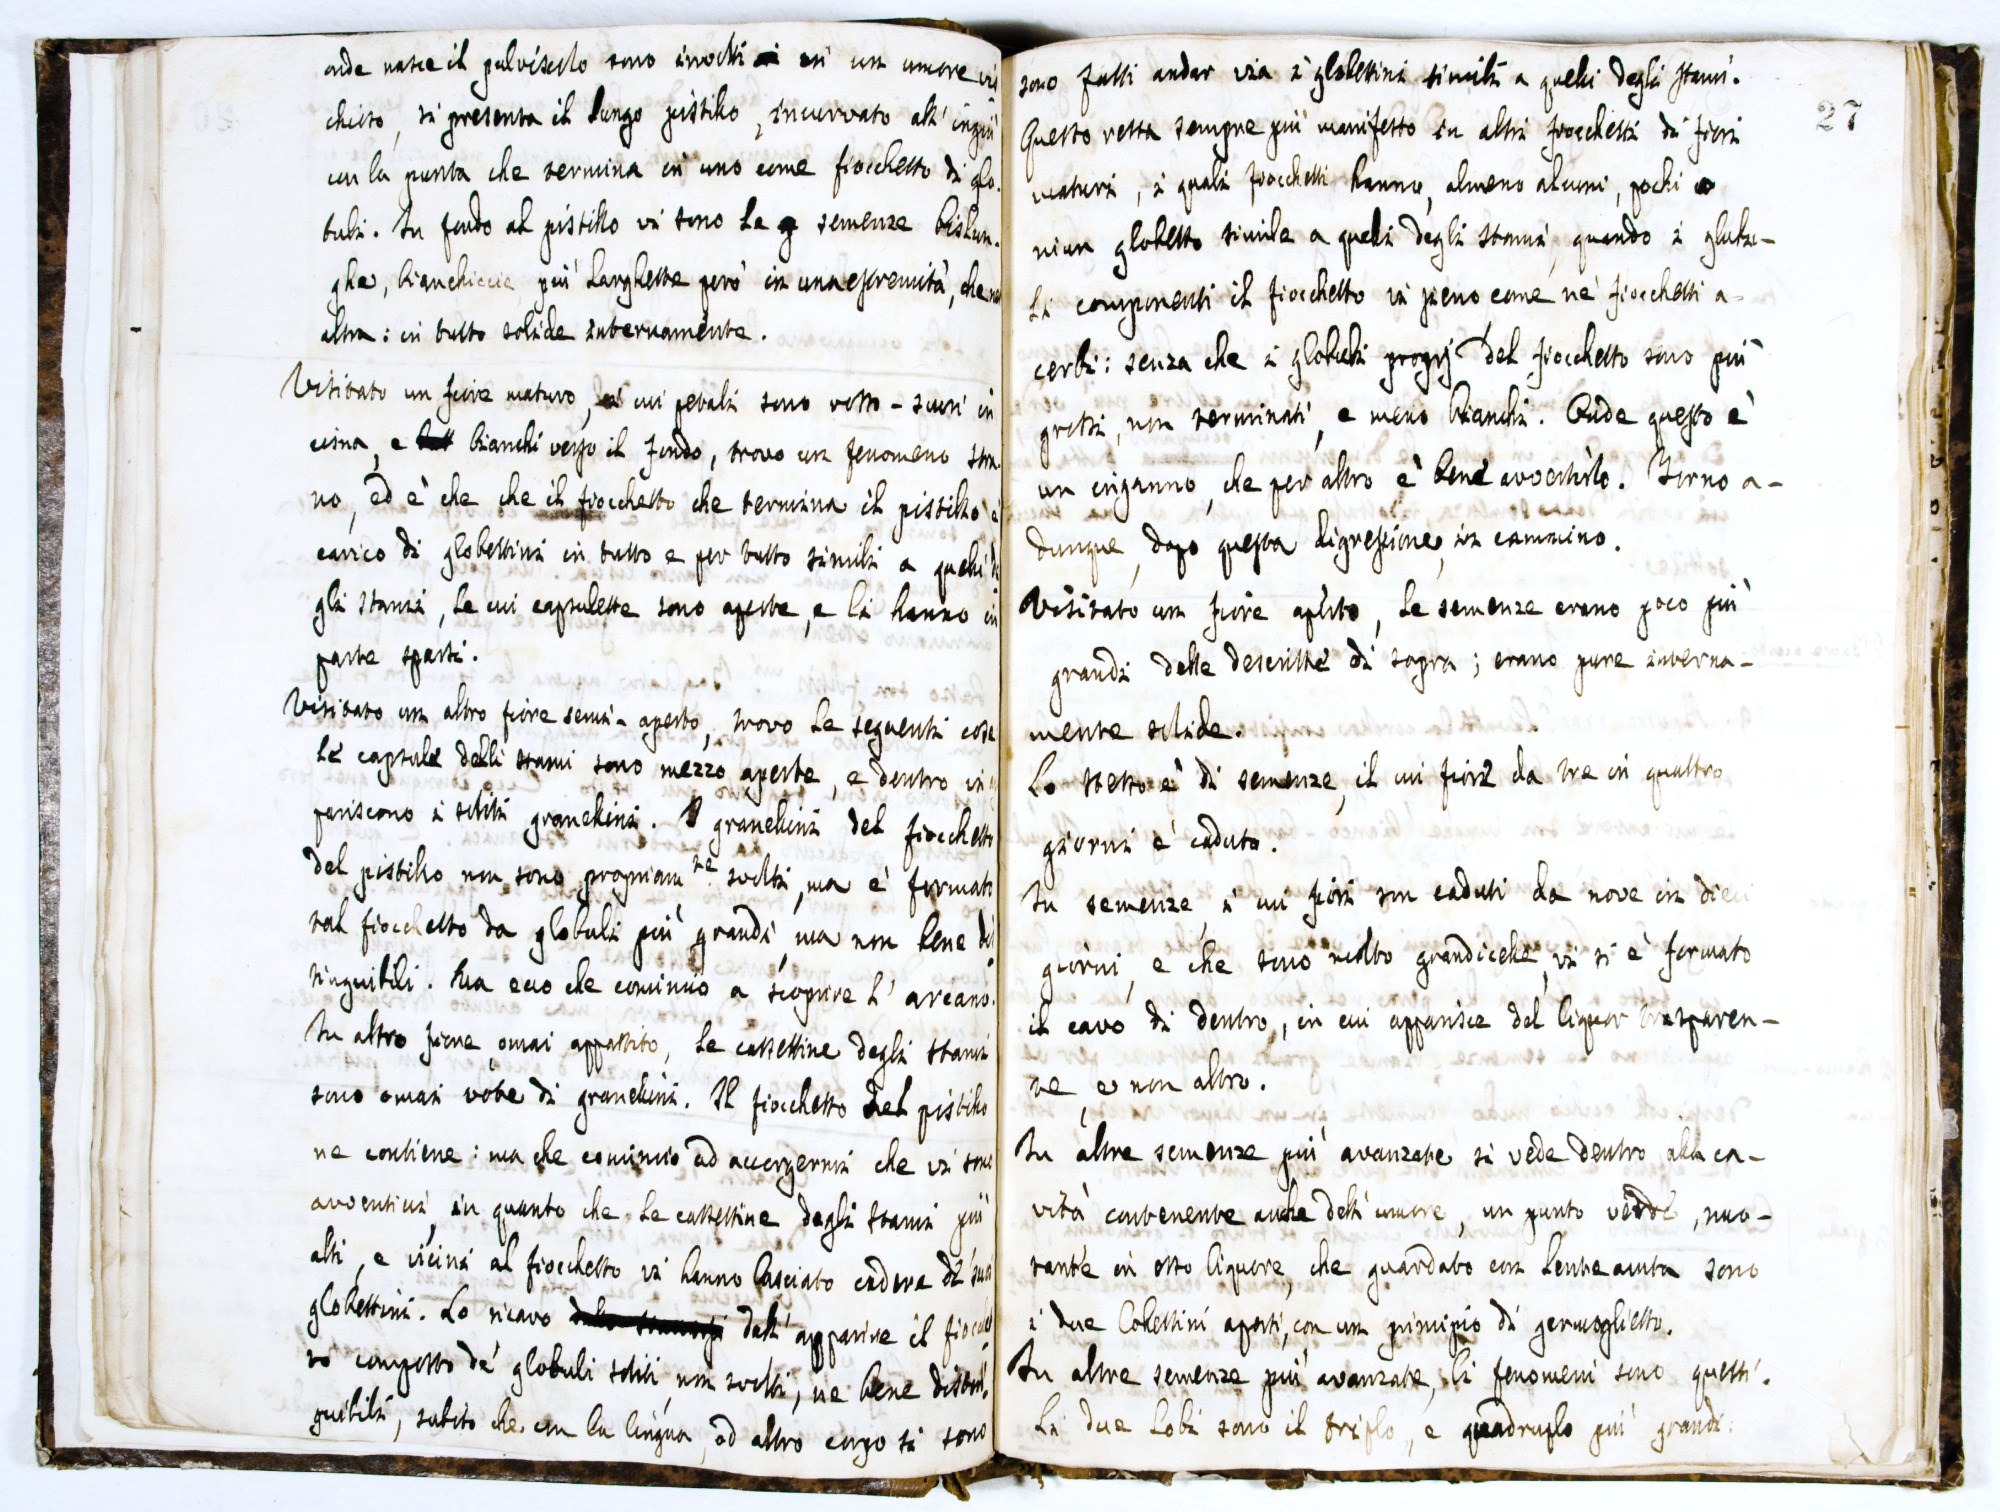 onde nasce il pulviscolo sono involti in un umore vis
chioso, si presenta il lungo pistillo, incurvato all'ingiù
con la punta che termina in uno come fiocchetto di glo-
buli. In fondo al pistillo vi sono le semenze bislun-
ghe, bianchiccie, più larghette però in una estremità, che ne
altra: in tutto solide internamente.
Visitato un fiore maturo, i cui petali sono rosso-scuri in
cima, e bianchi verso il fondo, trovo un fenomeno stra-
no, ed è che che il fiocchetto che termina il pistillo è
carico di globettini in tutto e per tutto simili a quelli de
gli stami, le cui capsulette sono aperte, e li hanno in
parte sparsi.
Visitato un altro fiore semi-aperto, trovo le seguenti cose
Le capsule delli stami sono mezzo aperte, e dentro vi ap
pariscono i soliti granellini. I granellini del fiocchetto
del pistillo non sono propriam.te sciolti, ma è formato
tal fiocchetto da globuli più grandi, ma non bene di
stinguibili. Ma ecco che comincio a scoprire l'arcano.
In altro fiore omai appassito, le cassettine degli stami
sono omai vote di granellini. Il fiocchetto del pistillo
ne contiene: ma che comincio ad accorgermi che vi sono
avventizi, in quanto che le cassettine degli stami più
alti, e vicini al fiocchetto vi hanno lasciato cadere di suoi
globettini. Lo ricavo dall'apparire il fiocchet
to composto de' globuli soliti, non sciolti, ne bene distin-
guibili, subito che con la lingua, od altro corpo si sono
27
sono fatti andar via i globettini simili a quelli degli stami.
Questo resta sempre più manifesto in altri fiocchetti di fiori
maturi, i quali fiocchetti hanno, almeno alcuni, pochi o
niun globetto simile a quelli degli stami, quando i globu-
li componenti il fiocchetto vi sieno come ne' fiocchetti a-
cerbi: senza che i globuli proprj del fiocchetto sono più
grossi, non terminati, e meno bianchi. Onde questo è
un inganno, che per altro è bene avvertirlo. Torno a-
dunque, dopo questa digressione, in cammino.
Visitato un fiore aperto, le semenze erano poco più
grandi delle descritte di sopra; erano pure interna-
mente solide.
Lo stesso è di semenze, il cui fiore da tre in quattro
giorni è caduto.
In semenze, i cui fiori son caduti da nove in dieci
giorni, e che sono molto grandicelle, vi si è formato
il cavo di dentro, in cui apparisce del liquor trasparen-
te, e non altro.
In altre semenze più avanzate si vede dentro alla ca-
vità contenente anche dell'umore, un punto verde, nuo-
tante in esso liquore, che guardato con lente acuta sono
i due lobettini aperti, con un principio di germoglietto.
In altre semenze più avanzate, li fenomeni sono questi.
Li due lobi sono il triplo, e quadruplo più grandi: